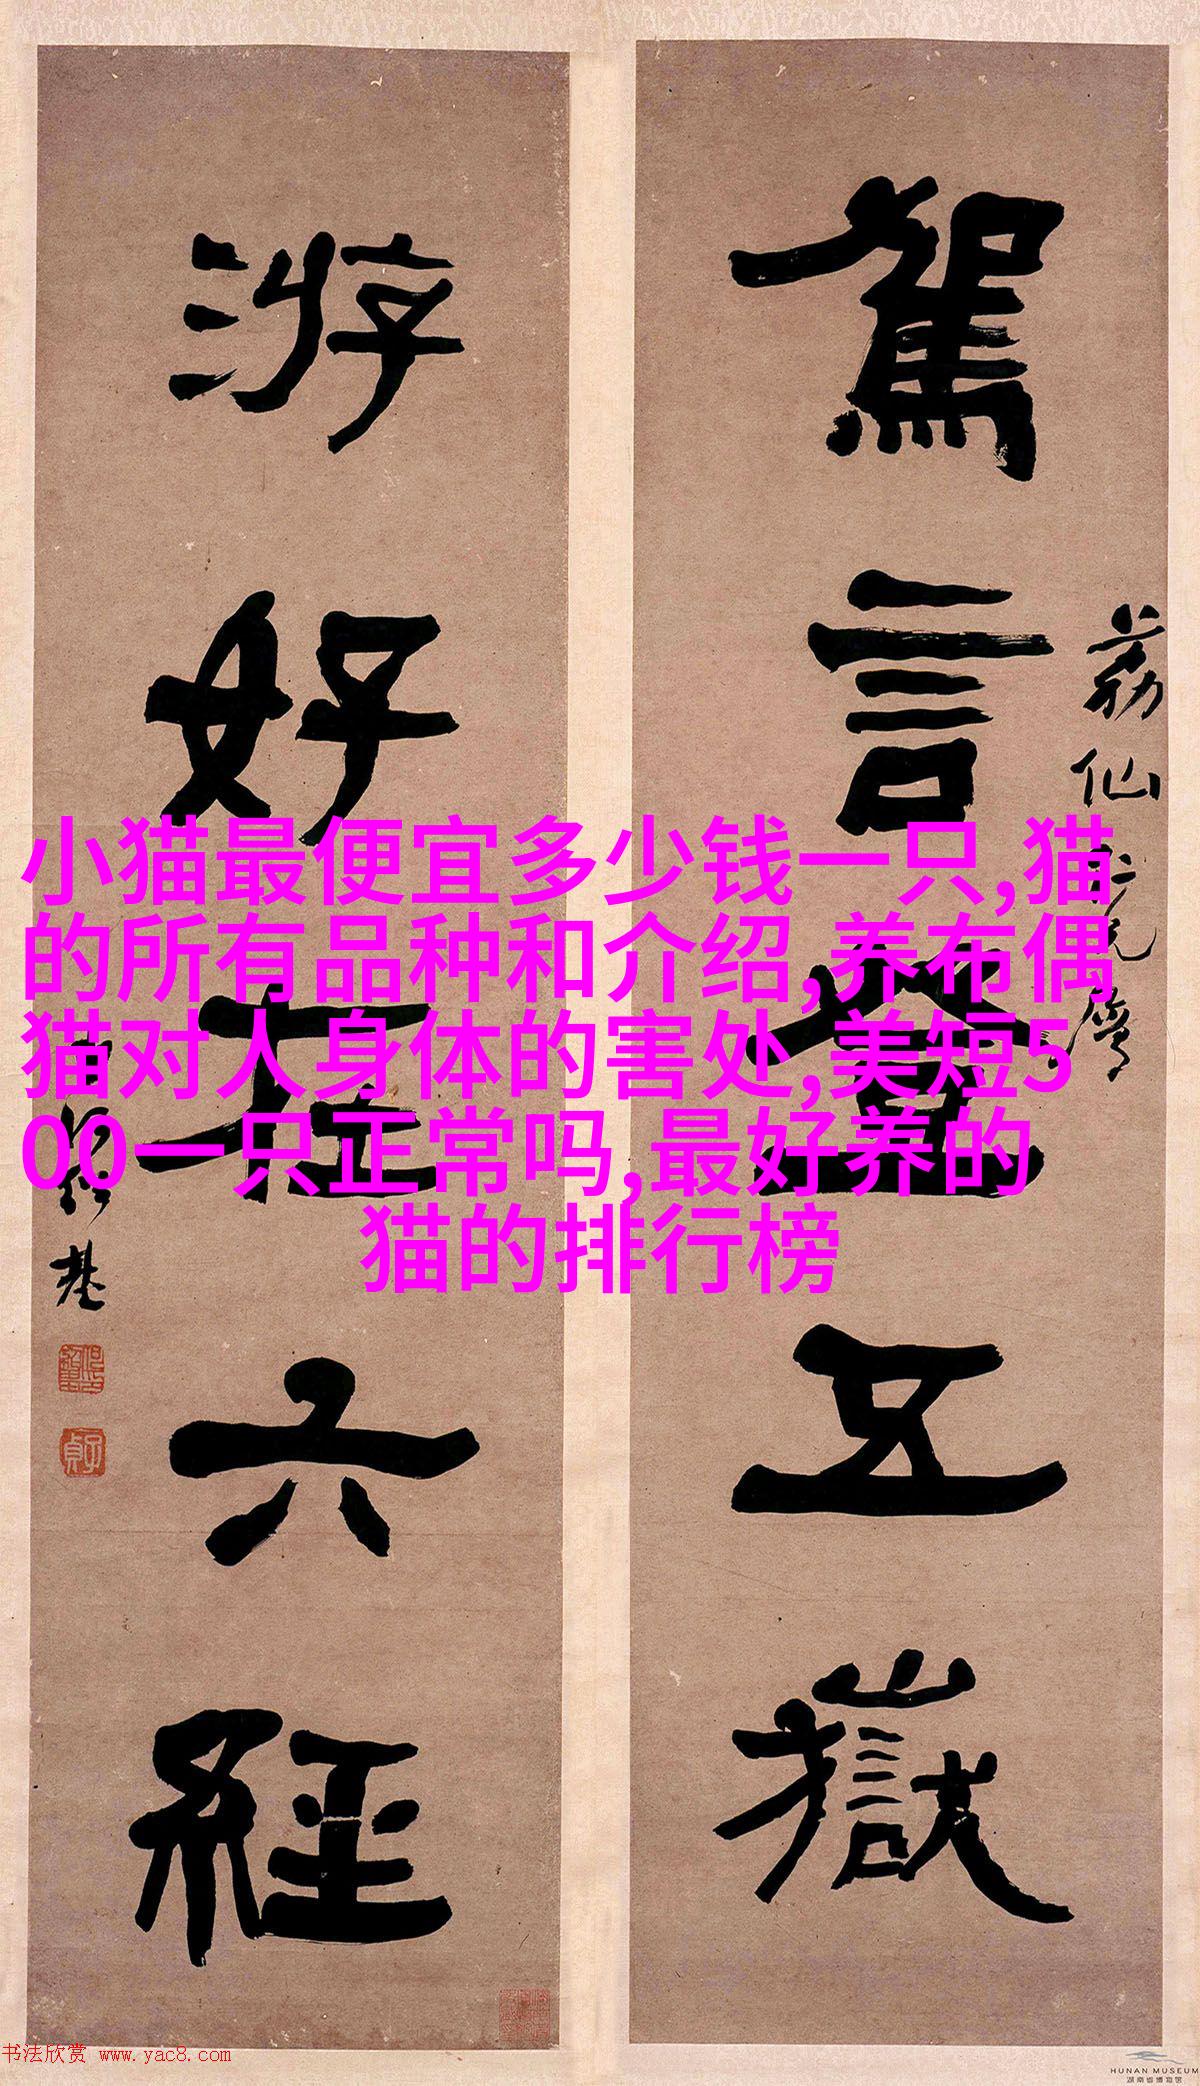 駕言登五嶽
游好在六經
荔仙仁兄屬
何紹基
小猫最便宜多少钱一只,猫
的所有品种和介绍,养布偶
猫对人身体的害处,美短5
00一只正常吗,最好养的
猫的排行榜
子貞
书法欣赏 www.yac8.com
HUNAN MUSEUM
湖南省博物馆